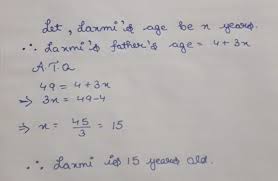 Let, Laxmi's age be x years.
∴ Laxmi's father's age = 4+3x
A.T.Q
49 = 4+3x
⇒ 3x = 49-4
⇒ x = 45/3 = 15
∴ Laxmi is 15 years old.